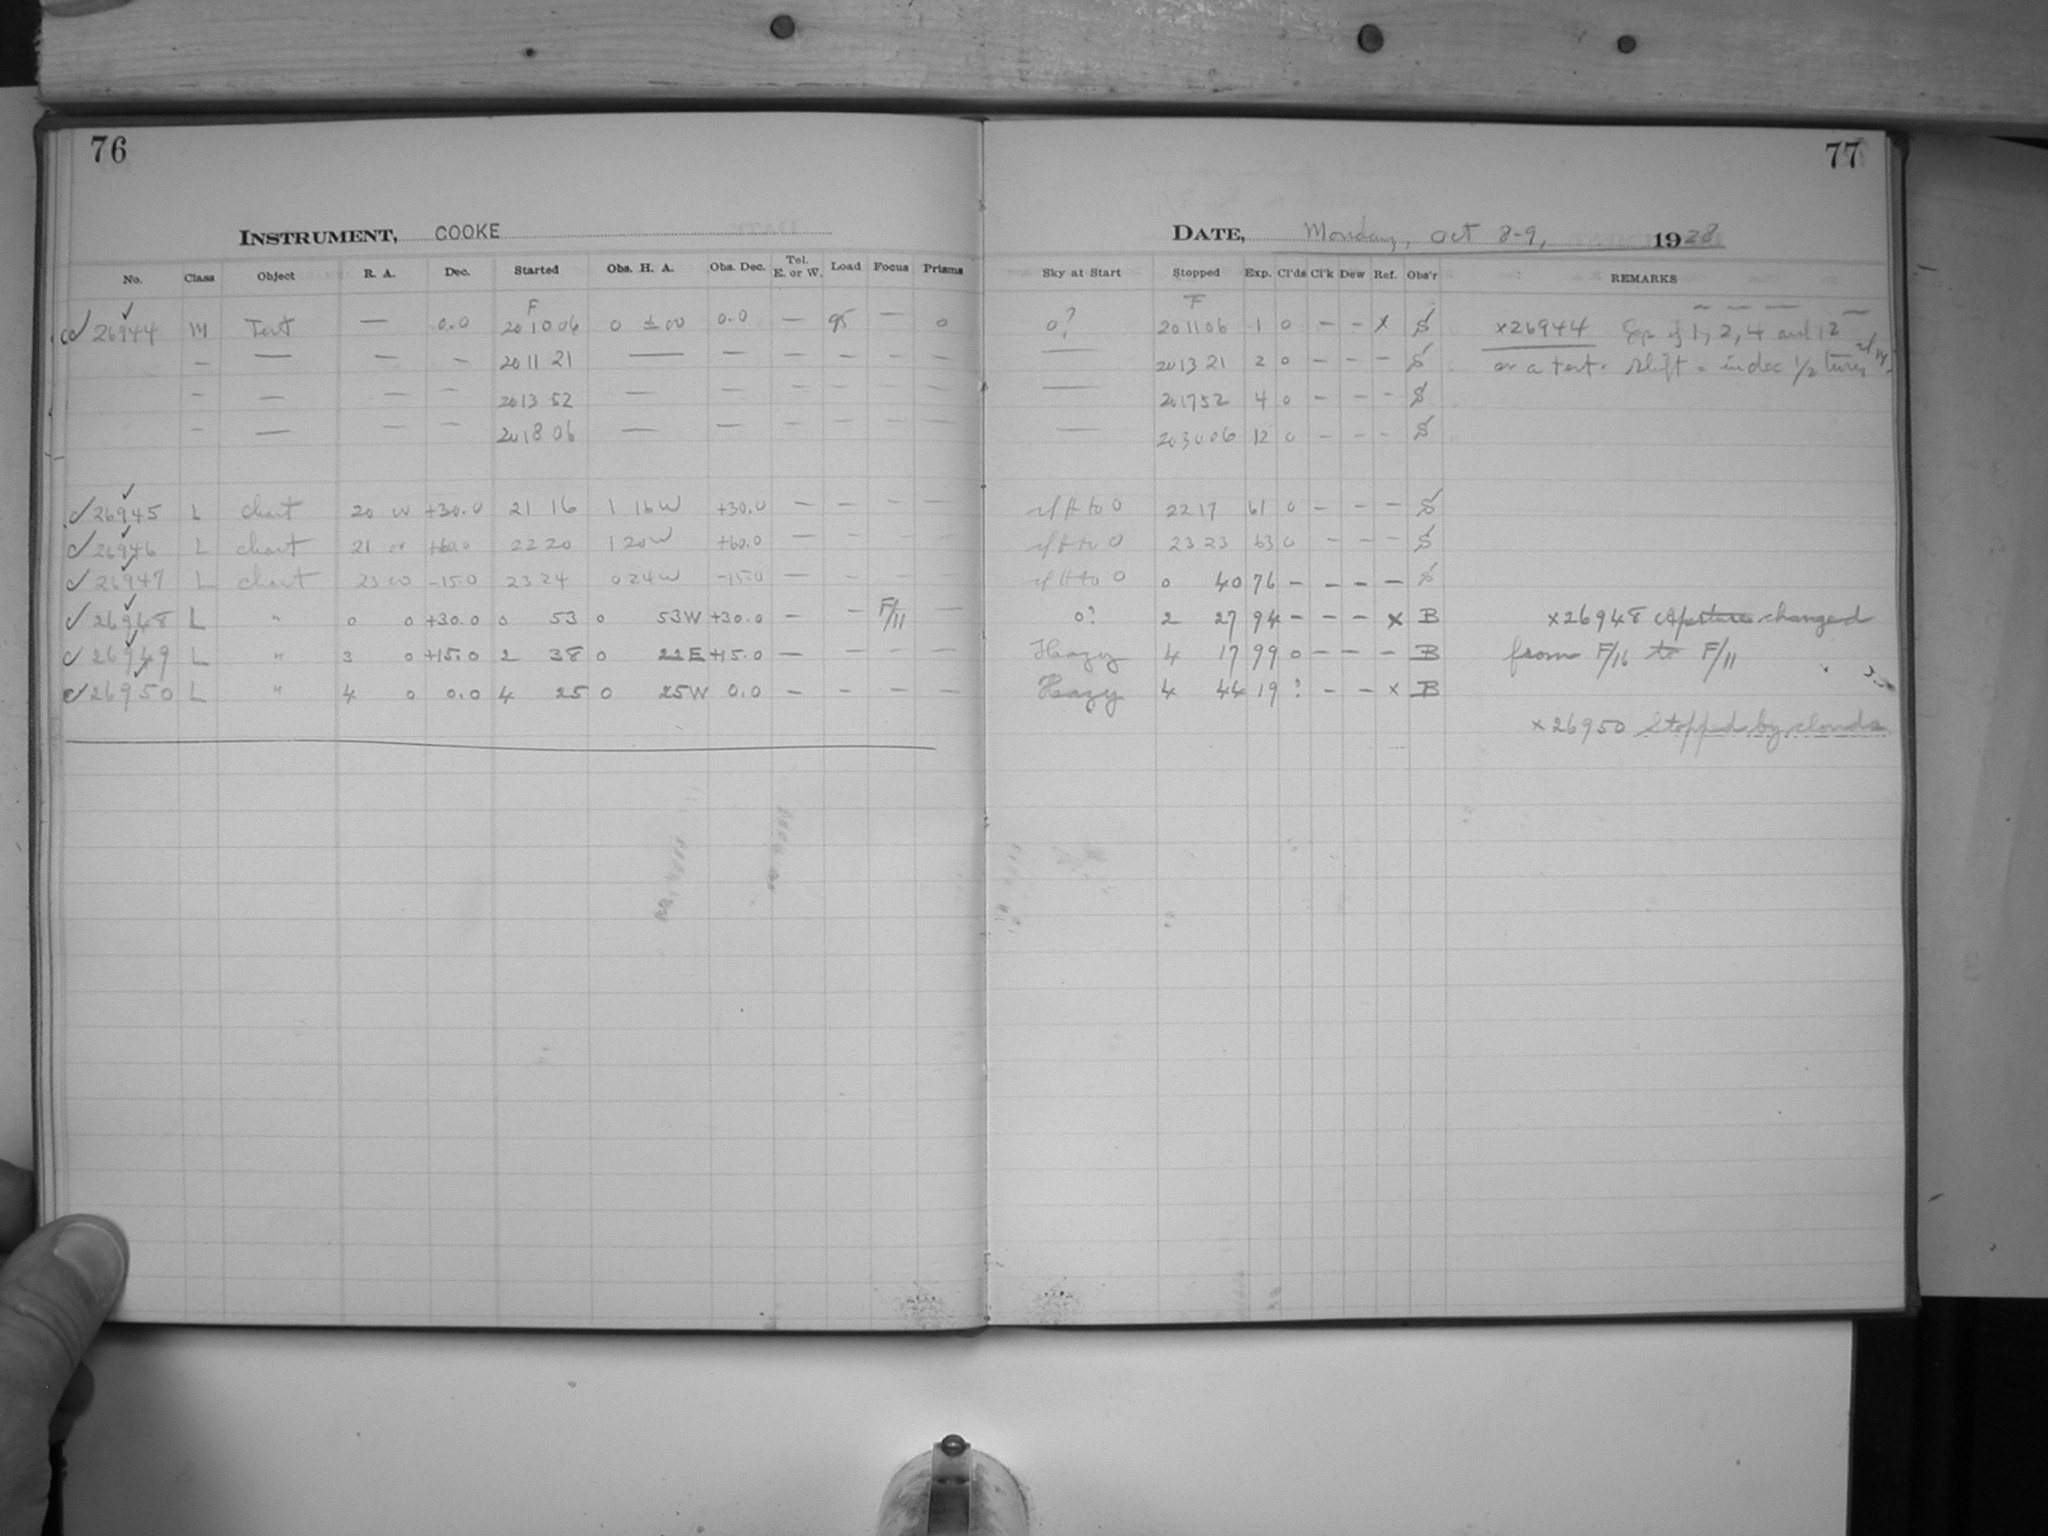 76
INSTRUMENT, COOKE
No. Class Object R. A. Dec. Started Obs. H. A. Obs. Dec. Tel. E. or W. Load Focus Prisms
F
26944 M Test — 0.0 20 10 06 0 ± 00 0.0 — 95 — 0
— — — — 20 11 21 — — — — — —
— — — — 20 13 52 — — — — — —
— — — — 20 18 06 — — — — — —
26945 L Chart 20 00 +30.0 21 16 1 16 W +30.0 — — — —
26946 L Chart 21 00 +60.0 22 20 1 20 W +60.0 — — — —
26947 L Chart 23 00 -15.0 23 24 0 24 W -15.0 — — — —
26948 L " 0 0 +30.0 0 53 0 53 W +30.0 — — F/11 —
26949 L " 3 0 +15.0 2 38 0 22 E +15.0 — — — —
26950 L " 4 0 0.0 4 25 0 25 W 0.0 — — — —
77
DATE, Monday, Oct 8-9, 1928
Sky at Start Stopped Exp. Cl'ds Cl'k Dew Ref. Obs'r REMARKS
F
0? 20 11 06 1 0 — — x S x26944 Exp of 1, 2, 4 and 12
— 20 13 21 2 0 — — — S on a test. Shift = in dec 1/2 turn
— 20 17 52 4 0 — — — S
— 20 30 06 12 0 — — — S
to 0 22 17 61 0 — — — S
to 0 23 23 63 0 — — — S
to 0 0 40 76 — — — — S
0? 2 27 94 — — — x B x26948 Aperture changed
Hazy 4 17 99 0 — — — B from F/16 to F/11
Hazy 4 44 19 ? — — x B
x26950 Stopped by clouds